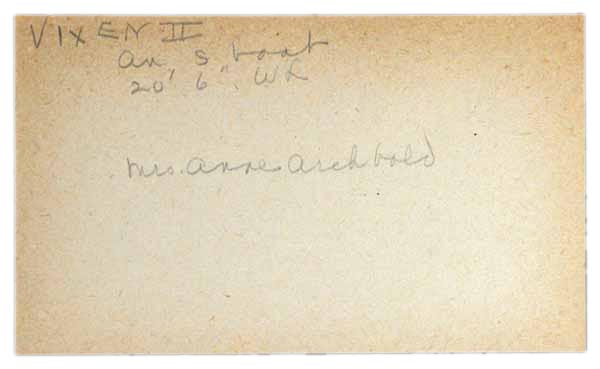 VIXEN II
an S boat
20' 6". WL
Mrs. Anne Archbold